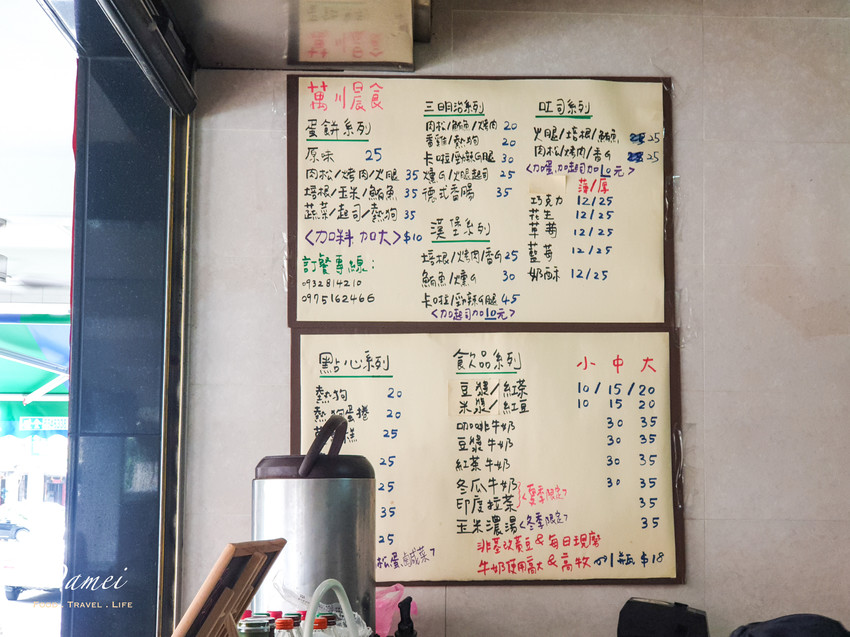 萬川晨食
蛋餅系列
原味 25
肉松/烤肉/火腿 35
培根/玉米/鮪魚 35
蔬菜/起司/熱狗 35
<加料 加大>$10
訂餐專線:
0932814210
0975162466
三明治系列
肉松/鮪魚/烤肉 20
香雞/熱狗 20
卡啦/勁辣G腿 30
燻G/火腿起司 25
德式香腸 35
漢堡系列
培根/烤肉/香G 25
鮪魚/燻G 30
卡啦/勁辣G腿 45
<加起司加10元>
吐司系列
火腿/培根/鮪魚 25
肉松/烤肉/香G 25
<加蛋,加起司加10元>
薄/厚
巧克力 12/25
花生 12/25
草莓 12/25
藍莓 12/25
奶酥 12/25
點心系列
熱狗 20
熱狗蛋捲 20
糕 25
25
25
35
25
松蛋鹹菜>
飲品系列 小 中 大
豆漿/紅茶 10/15/20
米漿/紅豆 10 15 20
咖啡牛奶 30 35
豆漿牛奶 30 35
紅茶牛奶 30 35
冬瓜牛奶 30 35
印度拉茶 35
<夏季限定>
玉米濃湯<冬季限定> 35
非基改黃豆&每日現磨
牛奶使用高大&高牧→1瓶$18
Damei
Food . Travel . Life